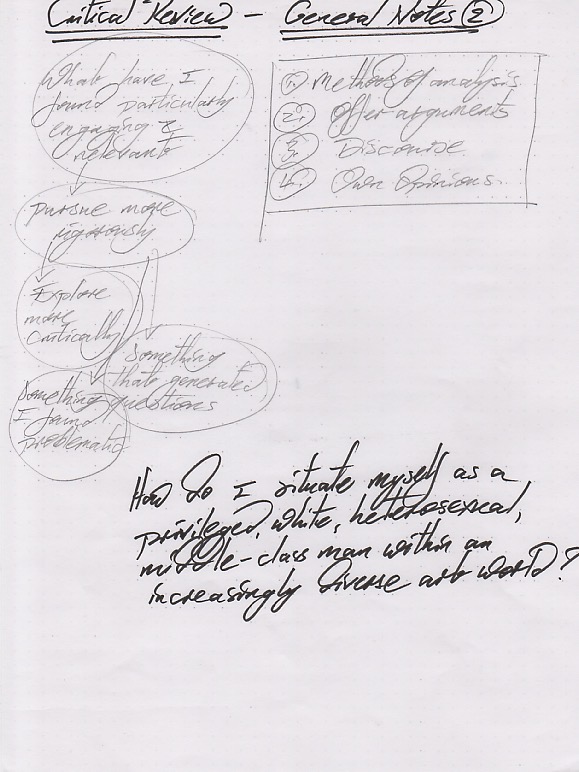 Critical Review – General Notes (2)
What have I
found particularly
engaging &
relevant
Pursue more
rigorously
Explore
more
critically
Something
that generated
questions
Something
I found
problematic
1. Methods of analysis
2. Offer arguments
3. Discourse
4. Own Opinions.
How do I situate myself as a
privileged, white, heterosexual,
middle-class man within an
increasingly diverse art world?